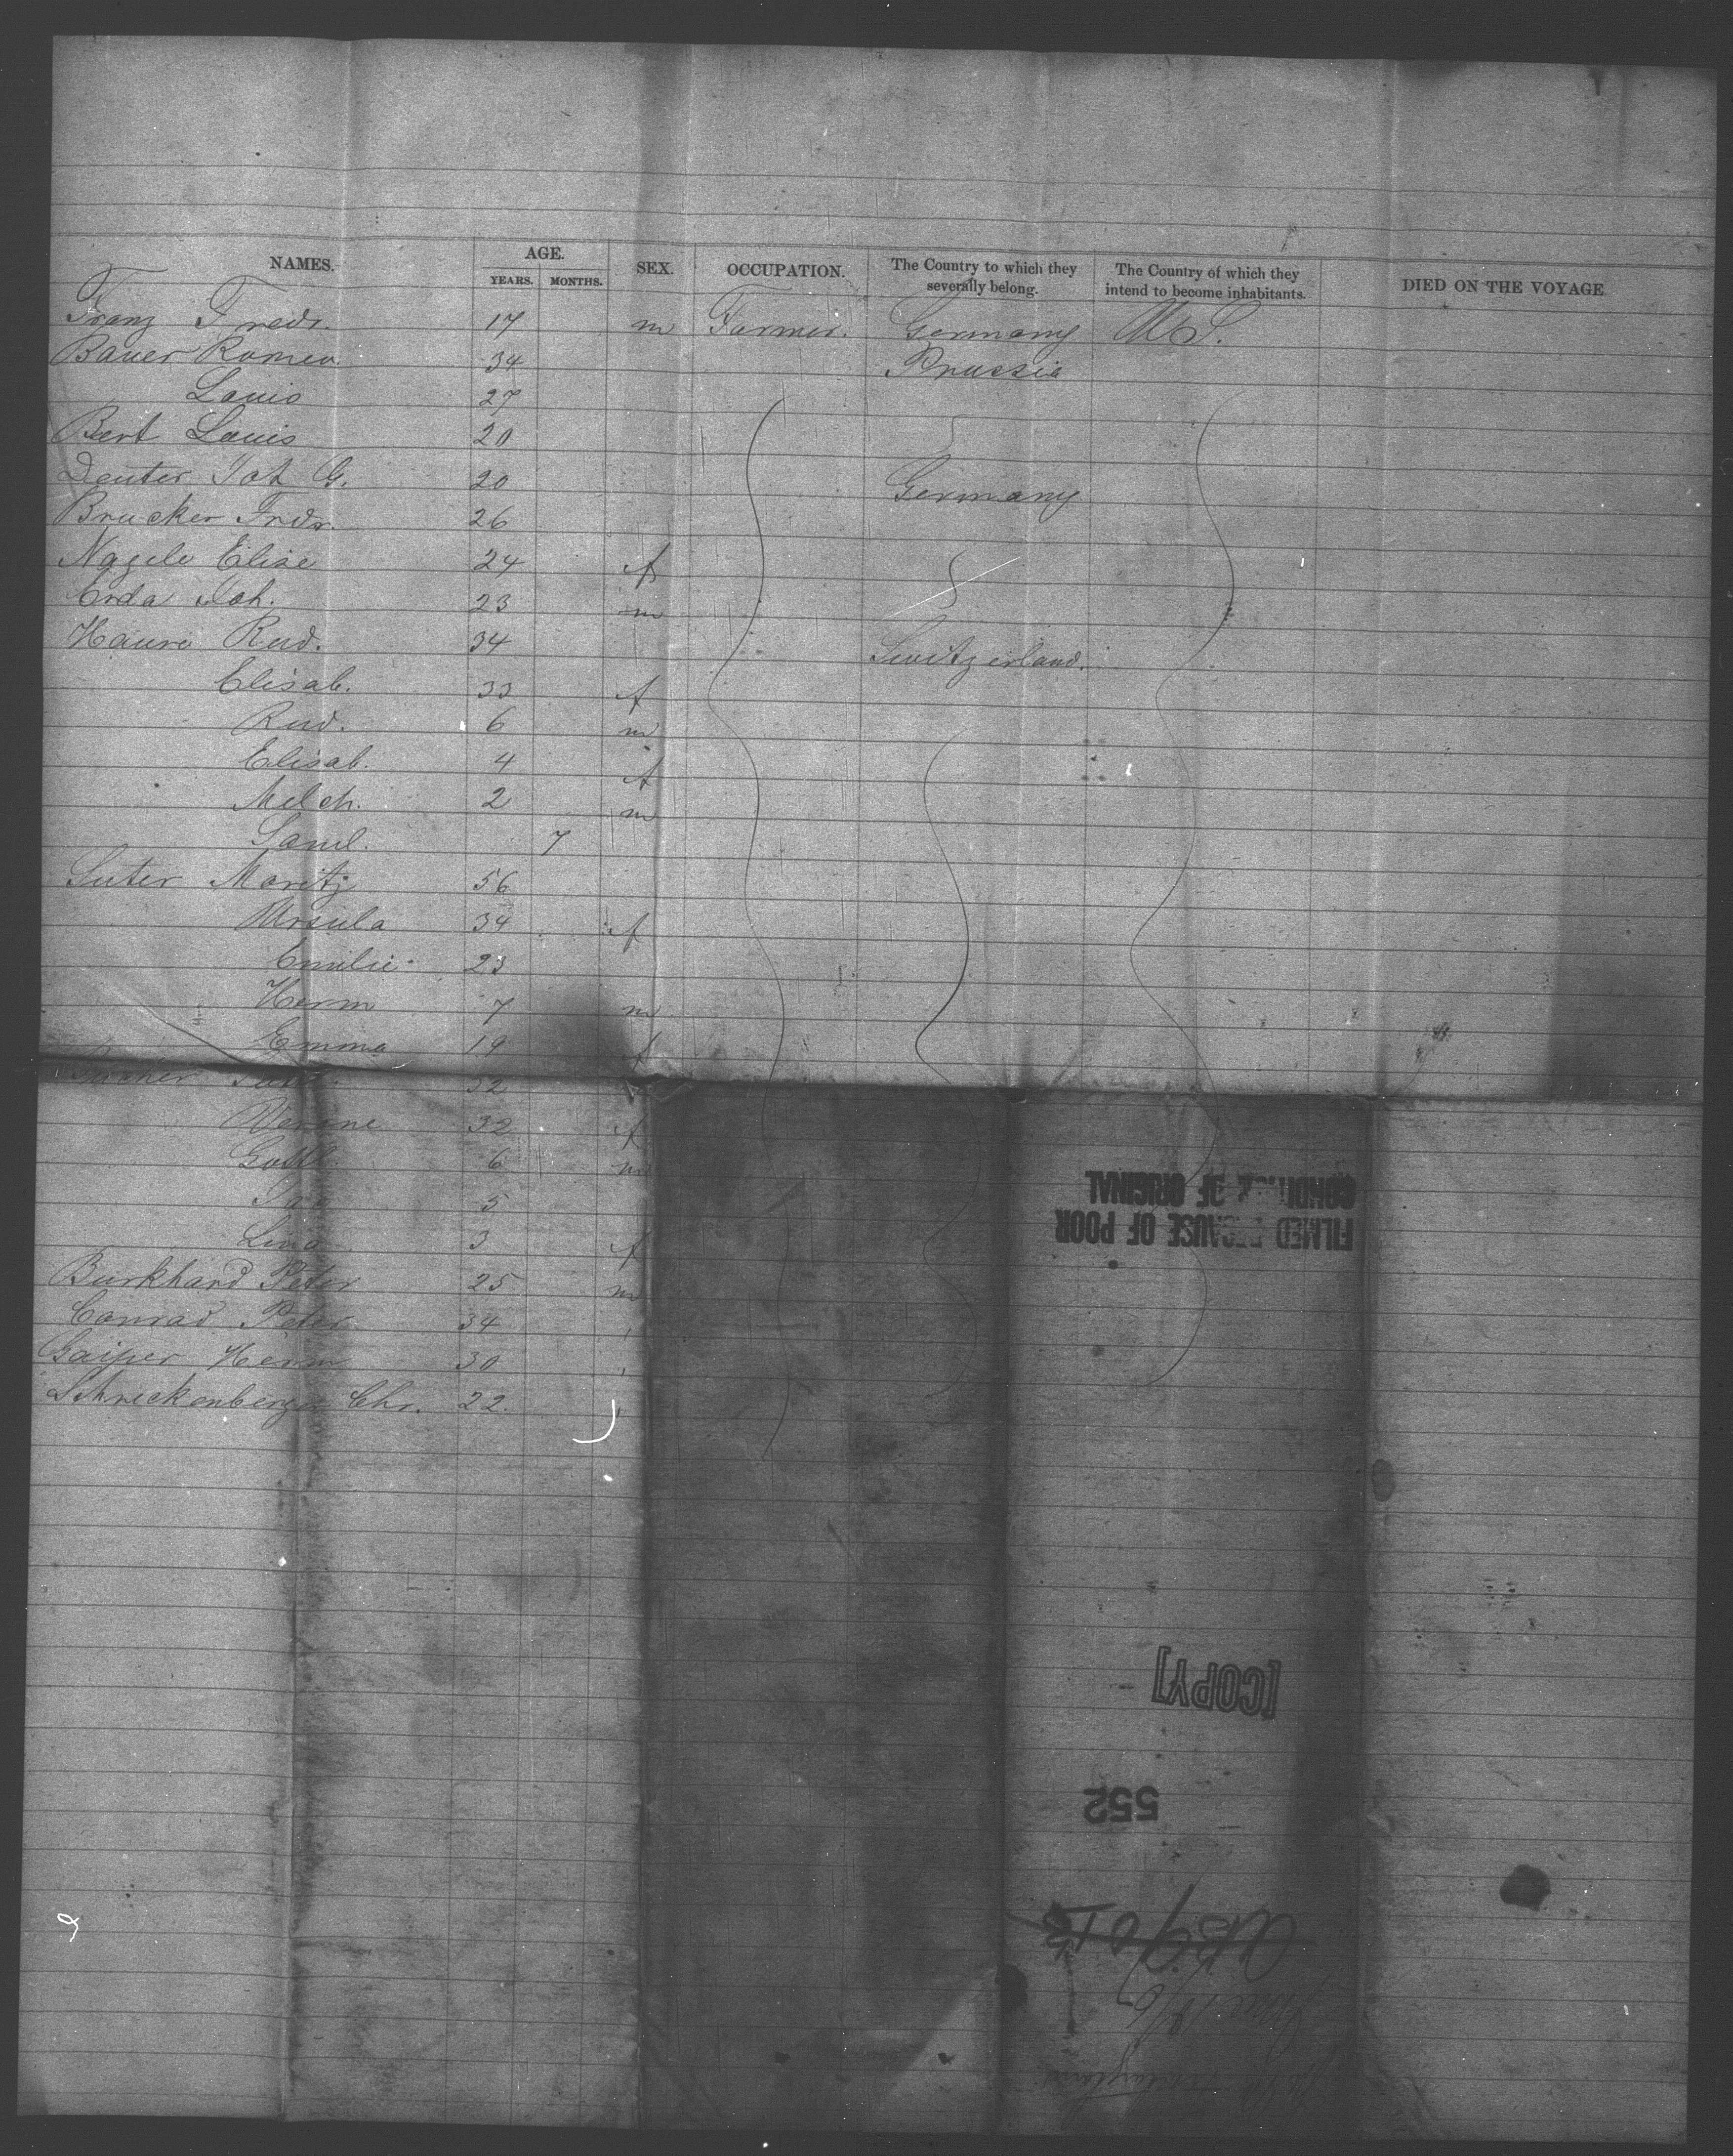 NAMES. AGE. SEX. OCCUPATION. The Country to which they severally belong. The Country of which they intend to become inhabitants. DIED ON THE VOYAGE
YEARS. MONTHS.
Franz Fredr. 17 m Farmer. Germany U.S.
Bauer Romeo 34 Prussia
Louis 27
Bert Louis 20
Deuter Joh G. 20 Germany
Brucker Fredr. 26
Nagele Elise 24 f
Erda Joh. 23 m
Haure Rud. 34 Switzerland.
Elisab. 33 f
Rud. 6 m
Elisab. 4 f
Melch. 2 m
Saml. 7
Suter Moritz 56
Ursula 34 f
Emilie 23
Herm 7 m
Emma 19 f
32
Verene 32 f
6 m
5
3 f
Burkhard Peter 25 m
Conrad Peter 34
Gaiser Herm 30
Schreckenberger Chr. 22.
FILMED BECAUSE OF POOR
CONDITION OF ORIGINAL
[COPY]
552